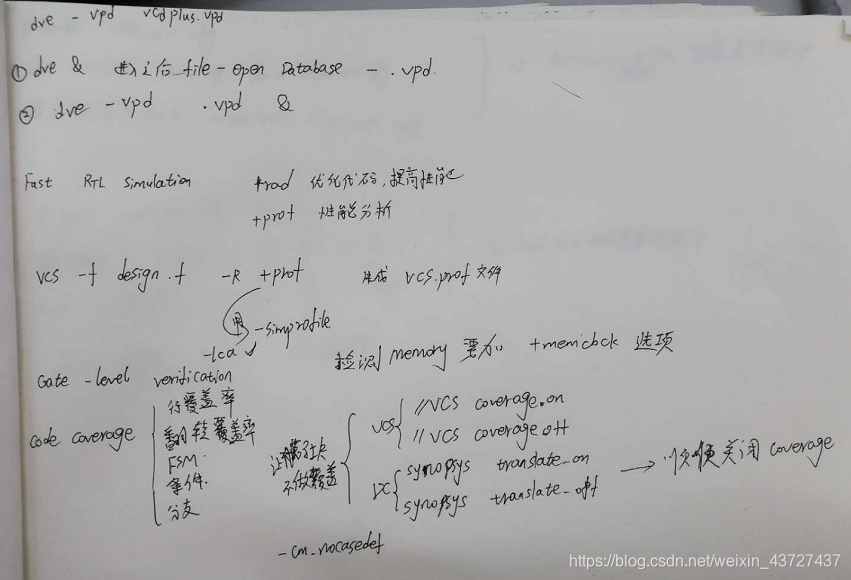 dve - vpd vcdplus.vpd
① dve & 进入之后 file - open Database - .vpd.
② dve -vpd .vpd &
Fast RTL simulation +rad 优化代码,提高性能
+prof 性能分析
VCS -f design.f -R +prof 生成 vcs.prof 文件
用 -simprofile
-lca
检测 memory 要加 +memcbk 选项
Gate-level verification
code coverage
行覆盖率
翻转覆盖率
FSM.
条件.
分支
不做覆盖
VCS
//VCS coverage.on
//VCS coverage.off
DC
synopsys translate_on
synopsys translate_off
→ 关闭 coverage
-cm_nocasedef
https://blog.csdn.net/weixin_43727437